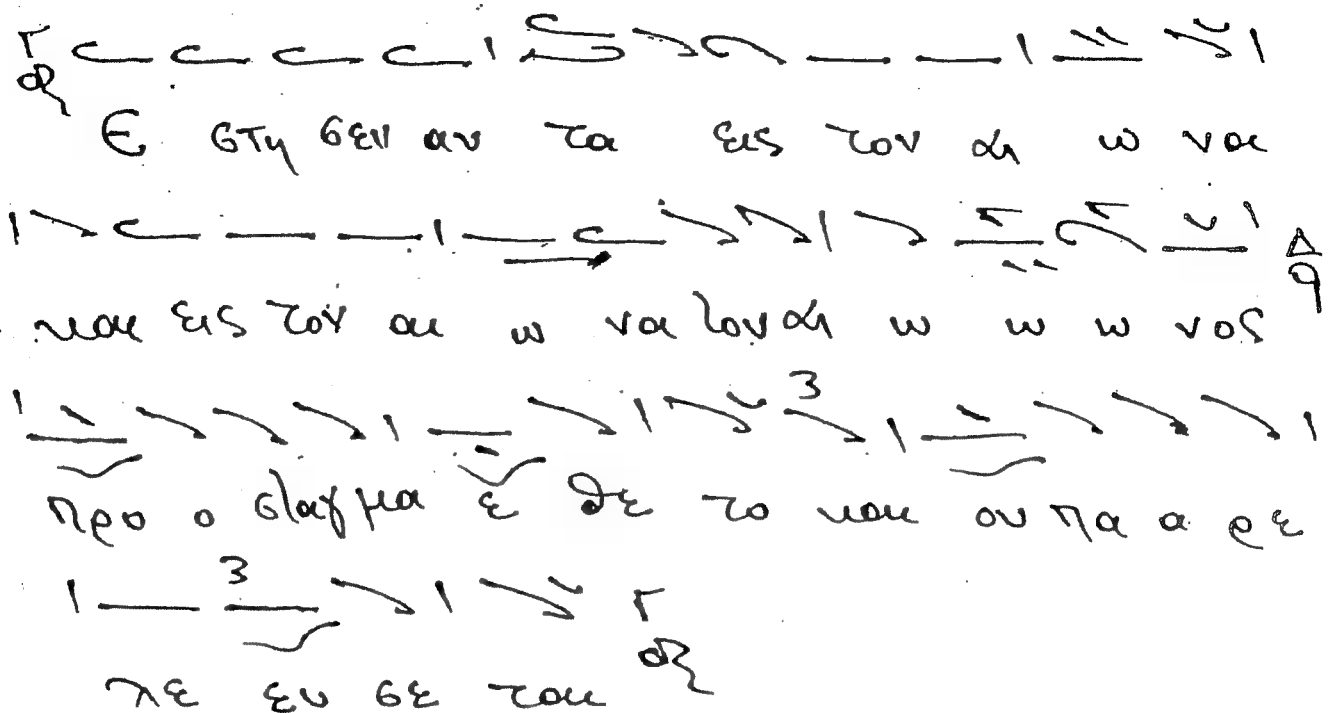 Γ
Ε στη σεν αυ τα εις τον αι ω να
και εις τον αι ω να τον αι ω ω ω νος
Δ
3
προ ο σταγ μα ε θε το και ου πα α ρε
3
Γ
λε ευ σε ται